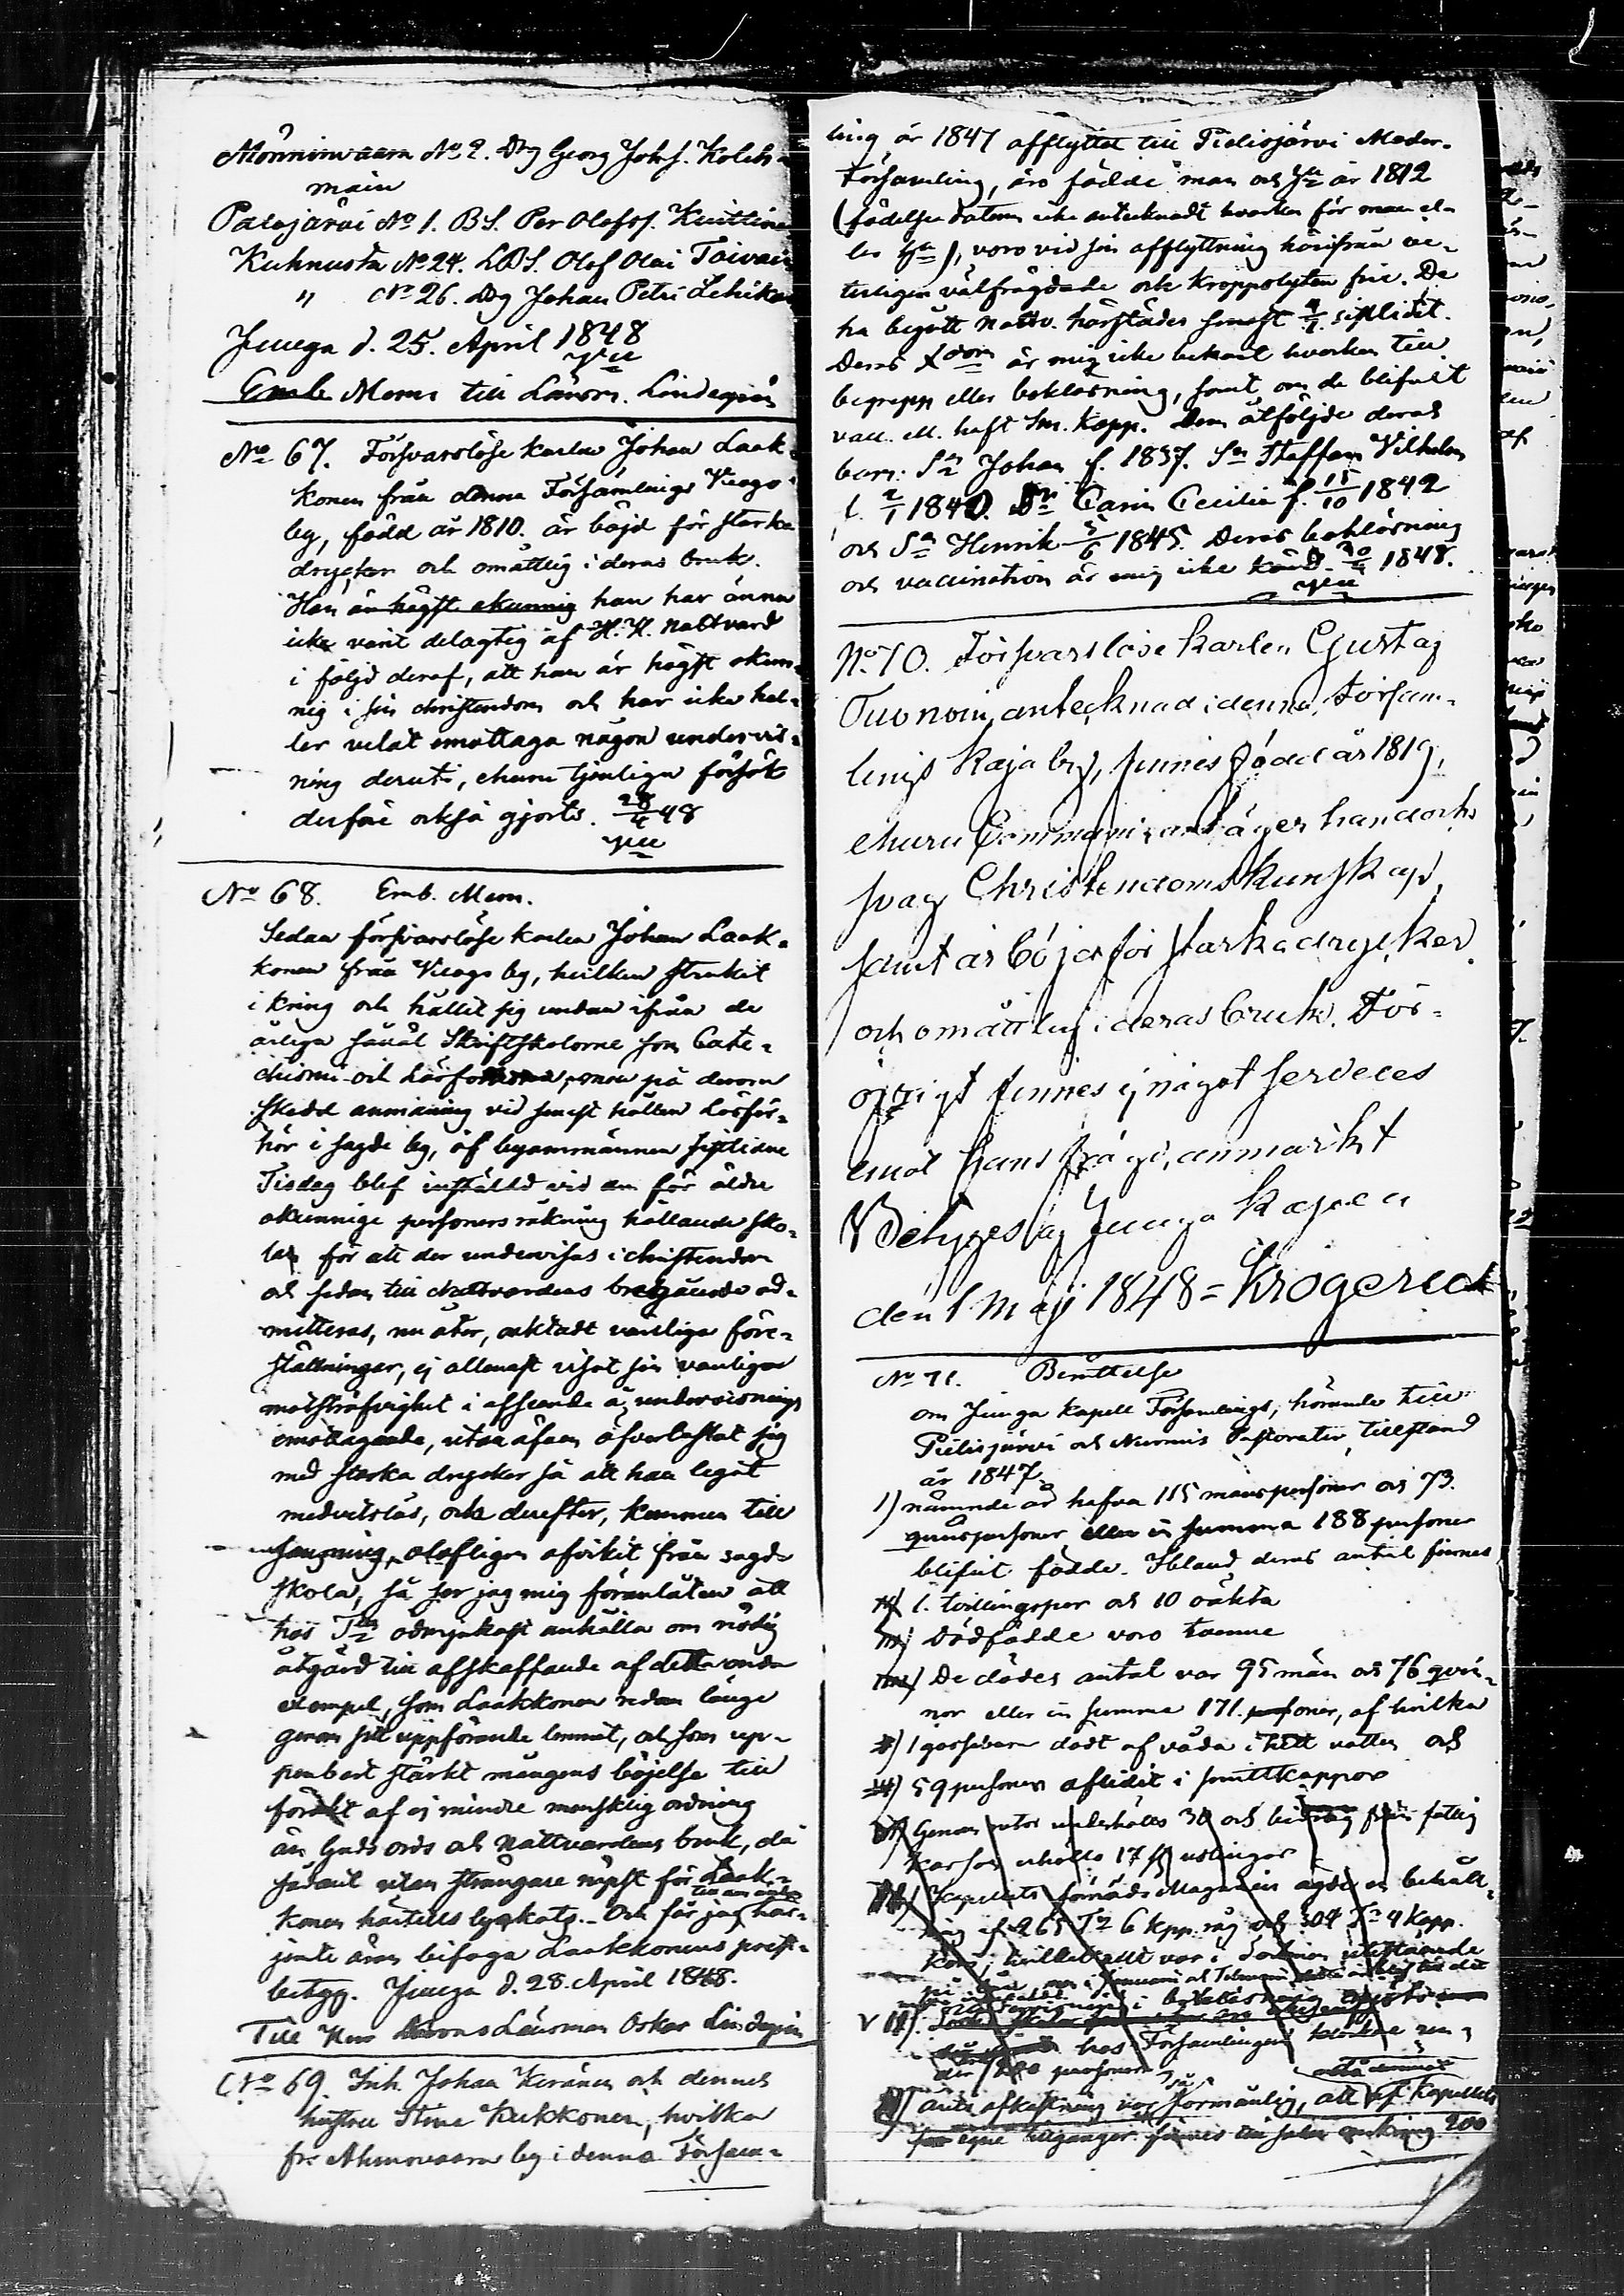 Mönninvaara No 2. Dtg Georg Johsf. Koleh-
main
Palojärvi No 1. BS. Per Olofss. Kuittine
Kuhnusta No 24. LBS. Olof Olai Toivai-
" No 26. Dtg Johan Petri Lehikoi
Juuga d. 25. April 1848
Emb. Mem. till Länsm. Lindeqvist
No 67. Försvarslöse karlen Johan Laak-
konen från denna Församlings Vieugo
by, född år 1810. är böjd för starka
drycker och omåttlig i deras bruk.
Han är högst okunnig han har ännu
icke varit delagtig af H. H. Nattvard
i följd deraf, att han är högst okun-
nig i sin christendom och har icke hel-
ler velat emottaga någon undervis-
ning deruti, ehuru tjenliga försök
derföre också gjorts. 28/4 48
No 68. Emb. Mem.
Sedan försvarslöse karlen Johan Laak-
konen från Vieugo by, hvilken strukit
i kring och hållit sig undan ifrån de
årliga såväl Skriftskolorne som Cate-
chismi- och Läsförhören, man på derom
skedd anmaning vid senast hållen Läsför-
hör i sagde by, af byamännen sistlidne
Tisdag blef inställd vid en för äldre
okunnige personers räkning hållande sko-
la för att der undervisas i christendom
och sedan till Nattvardens begående ad-
mitteras, nu åter, oaktadt vänliga före-
ställningar, ej allenast visat sin vanliga
motsträfvighet i afseende å undervisnings
emottagande, utan äfven öfverlastat sig
med starka drycker så att han legat
medvetslös, och derefter, kommen till
sansning, olofligen afvikit från sagde
skola, så ser jag mig föranlåten att
hos T. ödmjukast anhålla om nödig
åtgärd till afskaffande af detta onda
exempel, som Laakkonen redan länge
genom sitt uppförande lemnat, och som up-
penbart stärkt mångens böjelse till
förakt af ej mindre mensklig ordning
än Guds ords och Nattvardens bruk, då
sådant utan strängare näpst för Laak-
konen härtills lyckats. Och får jag här-
jemte även bifoga Laakkonens prest-
betyg. Juuga d. 28. April 1848.
Till Herr Länsman Oskar Lindeqvist
No 69. Inh. Johan Keränen och dennes
hustru Stina Kukkonen, hvilka
fr. Ahmovaara by i denna Försam-
ling år 1847 afflyttat till Pielisjärvi Moder-
Församling, äro födde man och Hu år 1812
(födelse datum icke antecknadt hvarken för man el-
ler Hu), voro vid sin afflyttning härifrån ve-
terligen välfrägdade och kroppslyten frie. De
ha begått Nattv. härstädes senast sistlidit.
Deras Xdom är mig icke bekant hvarken till
begrepp eller bokläsning, samt om de blifvit
vacc. ell. haft Sm. kopp. Dem åtföljde deras
barn: Sn Johan f. 1837. Sn Staffan Vilhelm
f. 2/1 1840. Dr Carin Cecilia f. 15/10 1842
och Sn Henrik 5/6 1845. Deras bokläsning
och vaccination är mig icke känd. 30/4 1848.
No 70. Försvarslöse karlen Gustaf
Tuonoin, antecknad i denna Försam-
lings Kaja by, finnes född år 1819,
ehuru Communicant äger han dock
svag Christendoms kunskap,
samt är böjd för starka drycker
och omåttlig i deras bruk. För-
öfrigt finnes ej något serdeles
emot hans frägd, anmärkt
Betygas af Juuga Kapell
den 1 Maji 1848 = Krogerus
No 71. Berättelse
om Juuga kapell Församlings, hörande till
Pielisjärvi och Nurmis Pastorater, tillstånd
år 1847.
1) nämnde år hafva 115 manspersoner och 73.
qvinspersoner eller in summa 188 personer
blifvit födde. Ibland deras antal finnes
1. tvillingspar och 10 oäkta
Dödfödde voro tvenne
De dödes antal var 95 män och 76 qvin-
nor eller in summa 171. personer, af hvilka
1 gossebarn dödt af våda i hett vatten och
59 personer aflidit i smittkoppor
Genom rotor underhålles 30 och bidrag från fattig
kassan erhållo 17 uslingar
Kapellets förråds Magazin ägde en behåll-
ning af 265 Tr 6 kpp. råg och 304 Tr 4 kapp.
korn; hvilket allt var i utestående
hos Församlingen
personer
Årets afkastning var förmånlig, att af Kapellets
egne tillgångar finnes till salu omkring 200